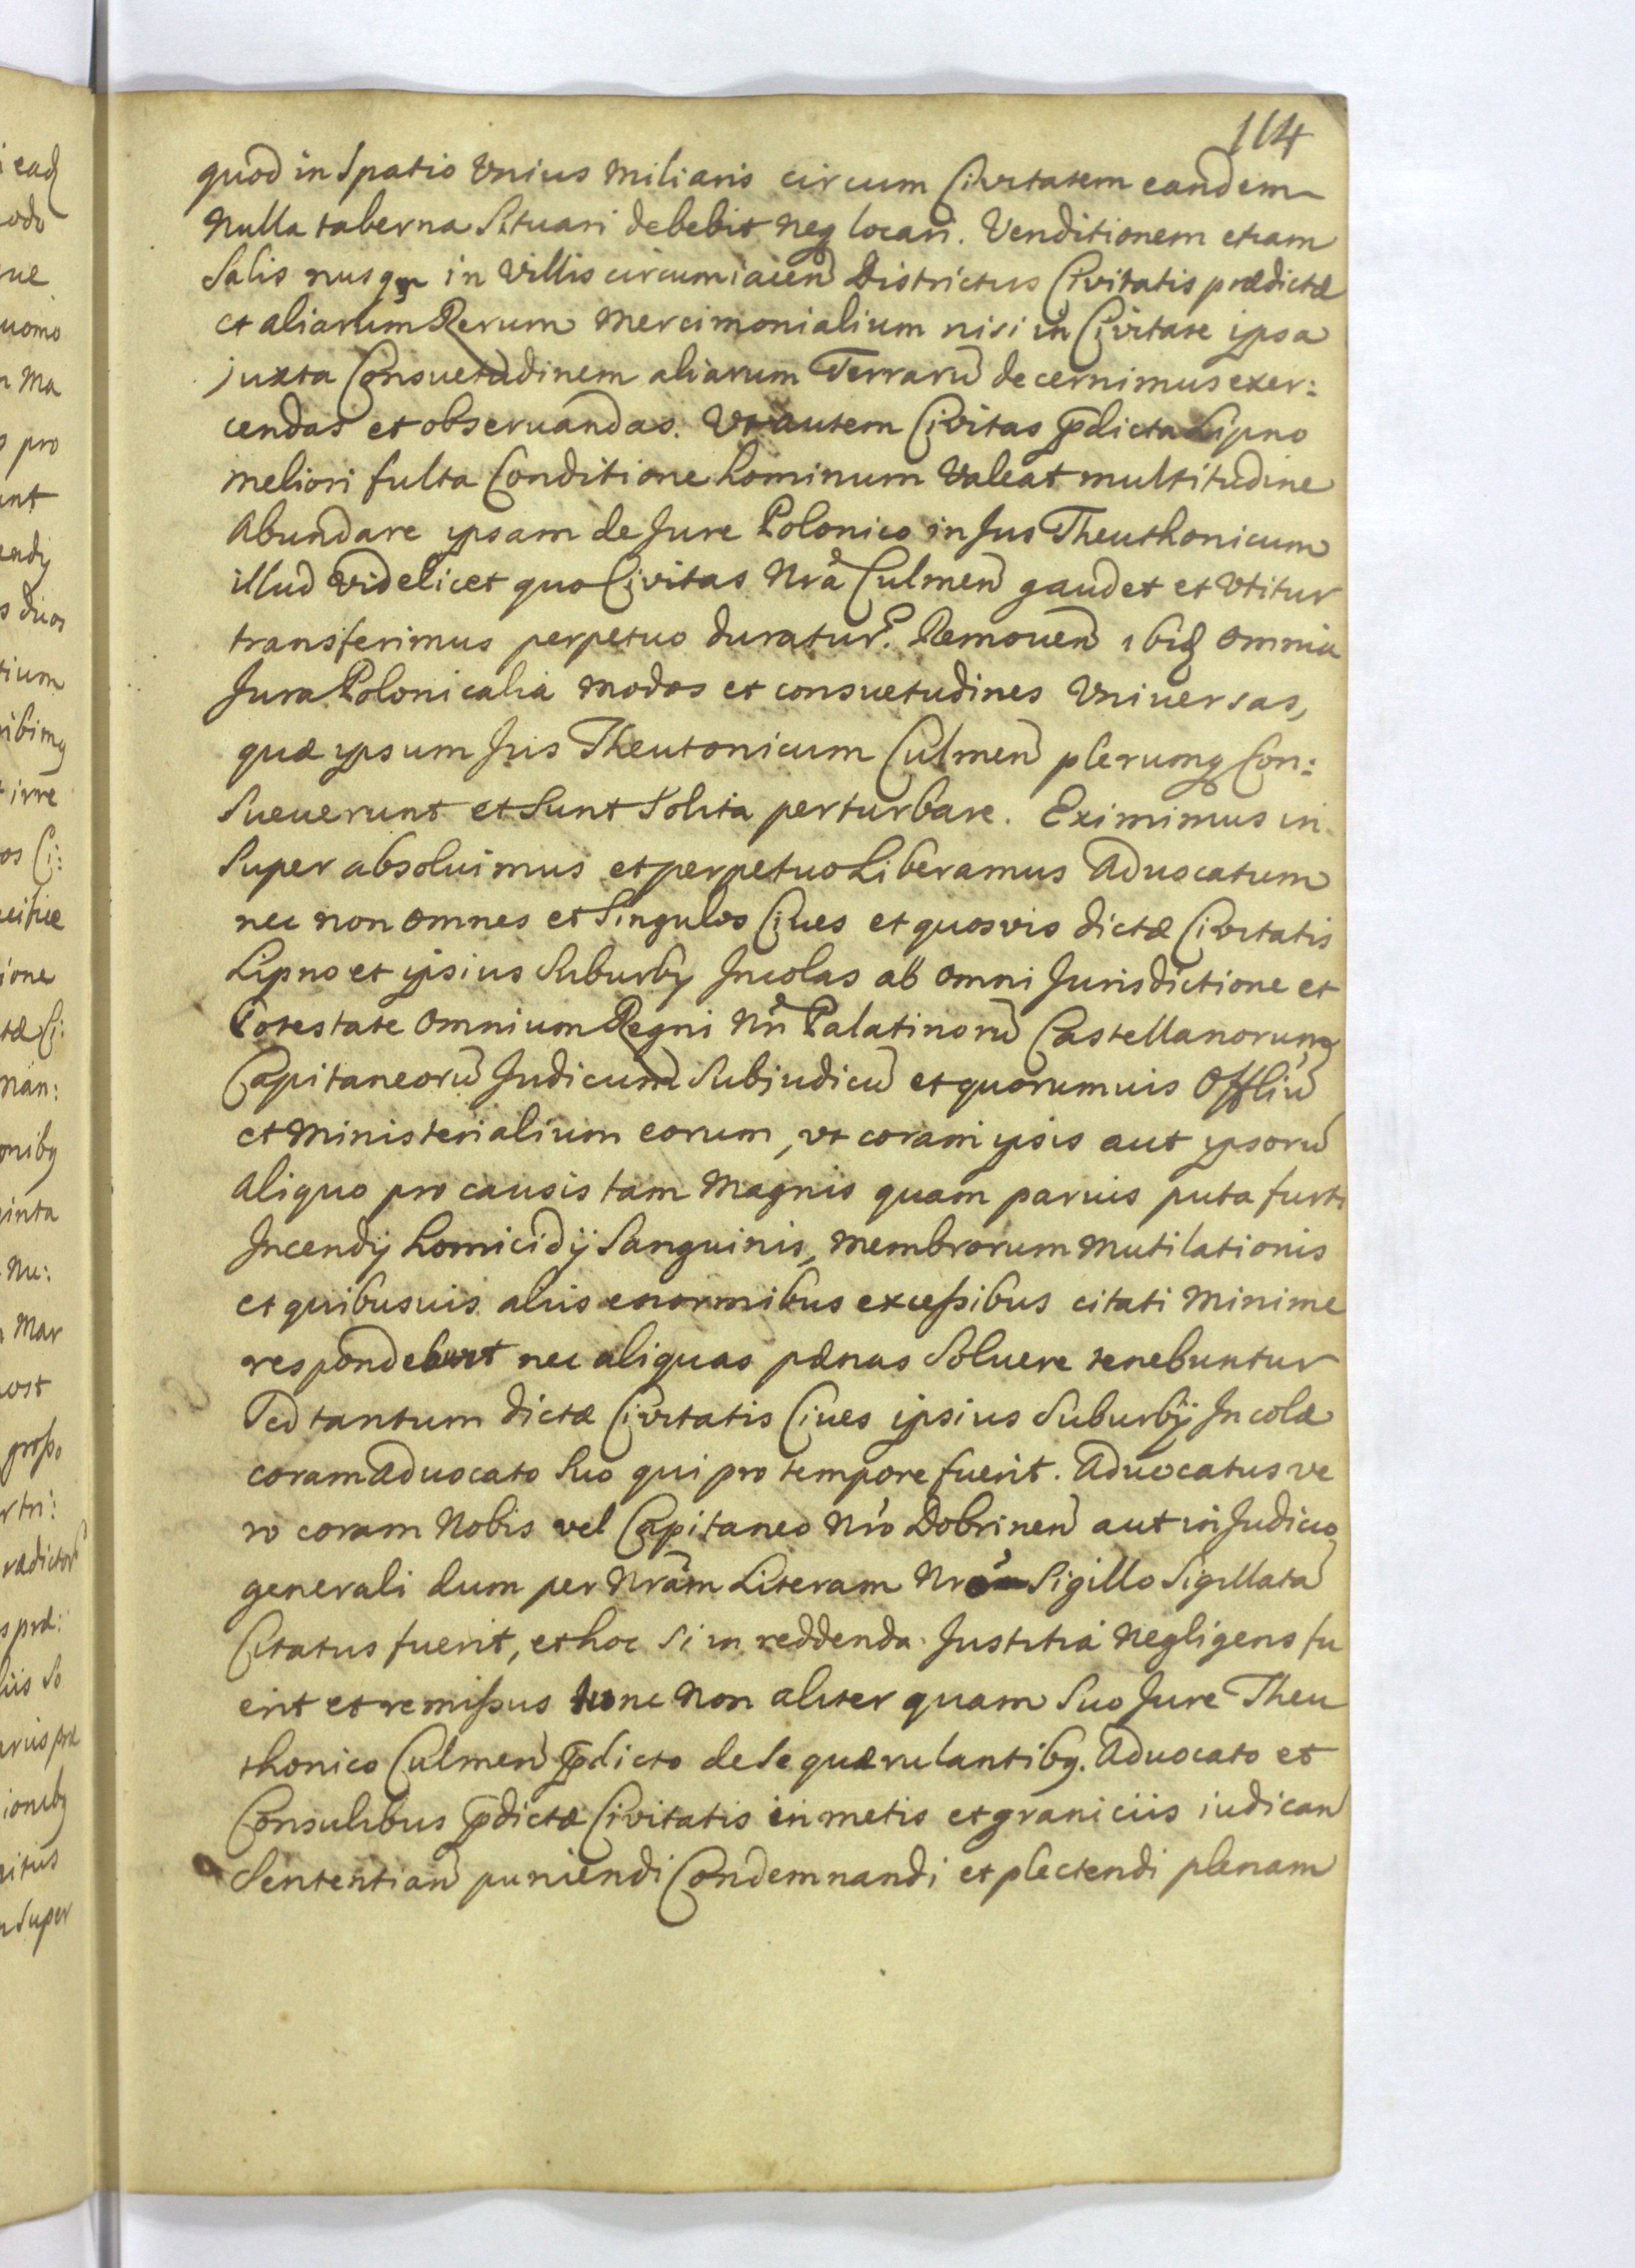 114
quod in Spatio Vnius Miliaris circum Civitatem eandem
Nulla taberna Situari debebit neq locari. Venditionem etiam
Salis nusqm in Villis circumiacen Districtus Civitatis prædictæ
et aliarum Rerum Mercimonialium nisi in Civitate ipsa
juxta Consuetudinem aliarum Terrarū decernimus exer:
cendas et obseruandas. Vt autem Civitas p̄dicta Lipno
meliori fulta Conditione hominum Valeat multitudine
Abundare ipsam de Jure Polonico in Jus Theuthonicum
illud Videlicet quo Civitas Nrã Culmen̄ gaudet et Vtitur
transferimus perpetuo duratur. Remouen̄ ibiq omnia
Jura Polonicalia modos et consuetudines Vniuersas,
quæ ipsum Jus Theutonicum Culmen̄ plerumq Con:
Sueuerunt et Sunt Solita perturbare. Eximimus in
Super absoluimus et perpetuo Liberamus Aduocatum
nec non omnes et Singulos Ciues et quosvis dictæ Civitatis
Lipno et ipsius Suburbij Incolas ab omni Jurisdictione et
Potestate omnium Regni Nri Palatinorū Castellanorum
Capitaneorū Judicum Subiudicū et quorumuis Offliū
et Ministerialium eorum, vt coram ipsis aut ipsorū
Aliquo pro causis tam Magnis quam paruis puta furti
Incendij homicidij Sanguinis, Membrorum Mutilationis
et quibusuis alijs enormibus excessibus citati Minime
respondebunt nec aliquas pænas Soluere tenebuntur
Sed tantum dictæ Civitatis Ciues ipsius Suburbij Incolæ
coram Aduocato Suo qui pro tempore fuerit. Aduocatus ve
ro coram Nobis vel Capitaneo Nro Dobrinen̄ aut in Judicio
generali dum per Nrãm Literam Nro Sigillo Sigillatā
Citatus fuerit, et hoc Si in reddenda Justitia Negligens fu
erit et remissus tunc Non aliter quam Suo Jure Theu
thonico Culmen̄ p̄dicto de Se quærulantibq. Aduocato et
Consulibus p̄dictæ Civitatis in metis et graniciis iudican
Sententian̄ puniendi Condemnandi et plectendi plenam